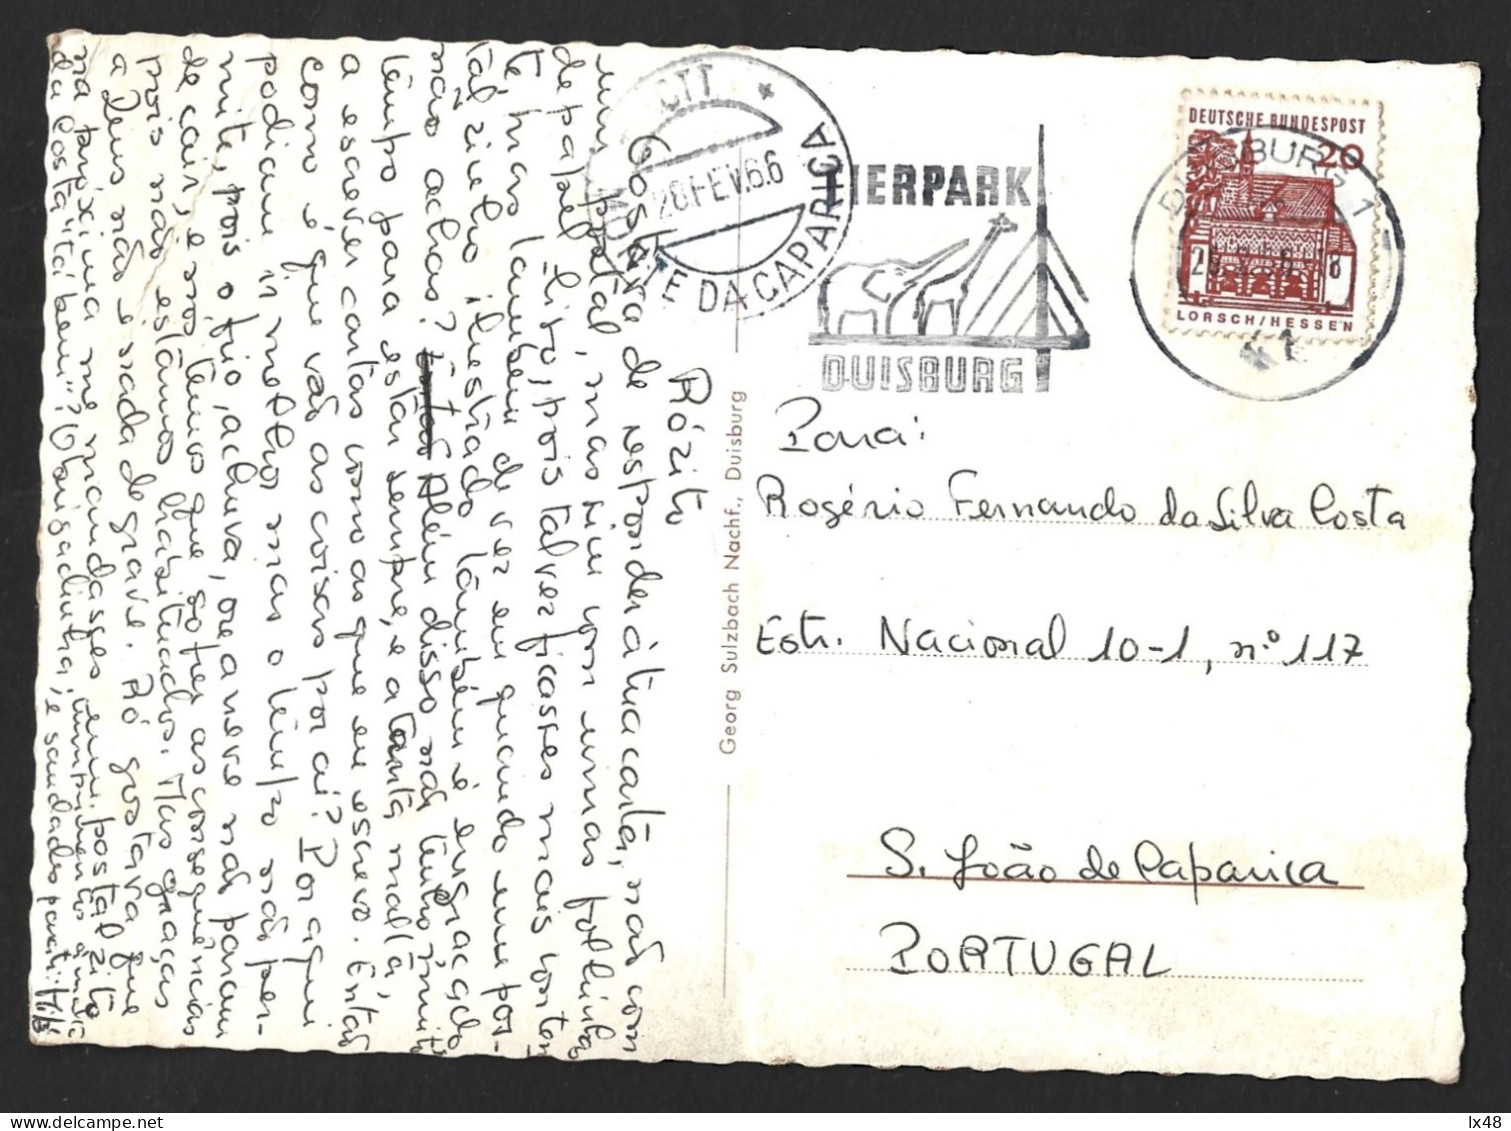 Rózito
Gostava de responder á tua carta, não com
um postal, mas sim com umas folhinhas
de papel lito, pois talvez ficasses mais conten
te, mas também de vez em quando um pos-
tal zinho ilustrado também é engraçado
não achas? Além disso não tenho muito
tempo para estar sempre, e a tanta malta,
a escrever cartas como as que eu escrevo. Então
como é que vão as coisas por aí? Por aqui
podiam ir melhor mas o tempo não per-
mite, pois o frio, a chuva, ou a neve não páram
de cair, e nós temos que sofrer as consequências
pois não estamos habituados. Mas graças
a Deus não é nada de grave. Ró gostava que
na próxima me mandasses um postalzito
da Costa, tá bem? Obrigadinha, cumprimentos a todos
e saudades para ti.
CTT *
20 FEV. 66
MONTE DA CAPARICA
TIERPARK
DUISBURG
DEUTSCHE BUNDESPOST
20
LORSCH/HESSEN
DUISBURG 1
41
Georg Sulzbach Nachf., Duisburg
Pará:
Rogério Fernando da Silva Costa
Estr. Nacional 10-1, nº 117
S. João de Caparica
PORTUGAL
lx48